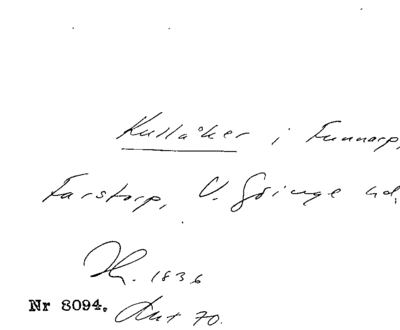 Kullåker i Funnarp,
Farstorp, V. Göinge hd.
1836
Nr 8094. Akt 70.